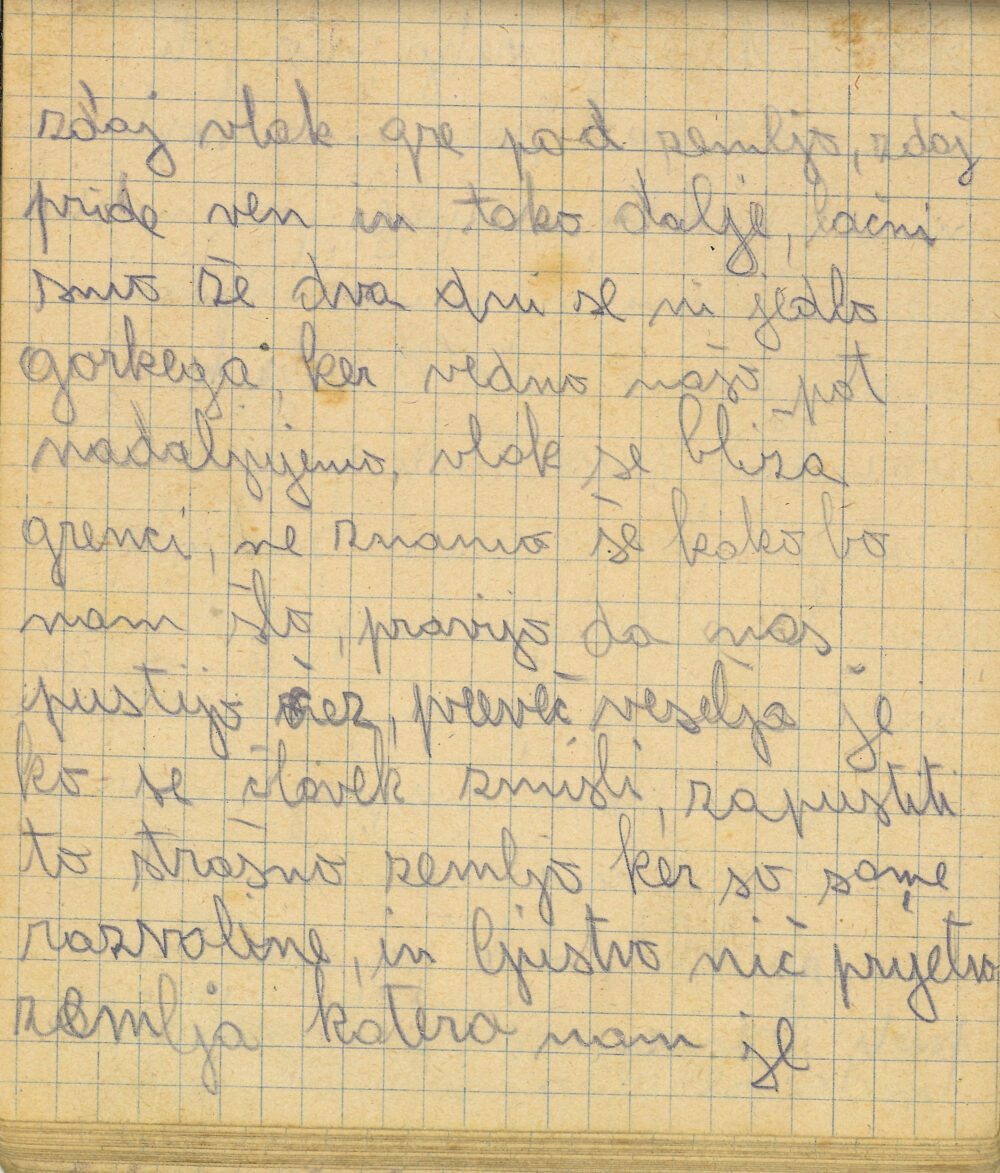 zdaj vlak gre pod zemljo, zdaj
pride ven in tako dalje, lačni
smo že dva dni se ni jedlo
gorkega, ker vedno našo pot
nadaljujemo, vlak se bliža
grenci, ne znamo še kako bo
nam šlo, pravijo da nas
pustijo čez, preveč veselja je
ko se človek zmisli, zapustiti
to strašno zemljo ker so same
razvaline, in ljustvo nič prijetno
zemlja katera nam je